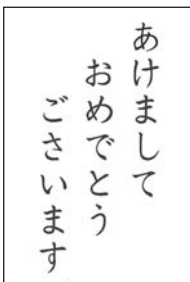 あけまして
おめでとう
ごさいます